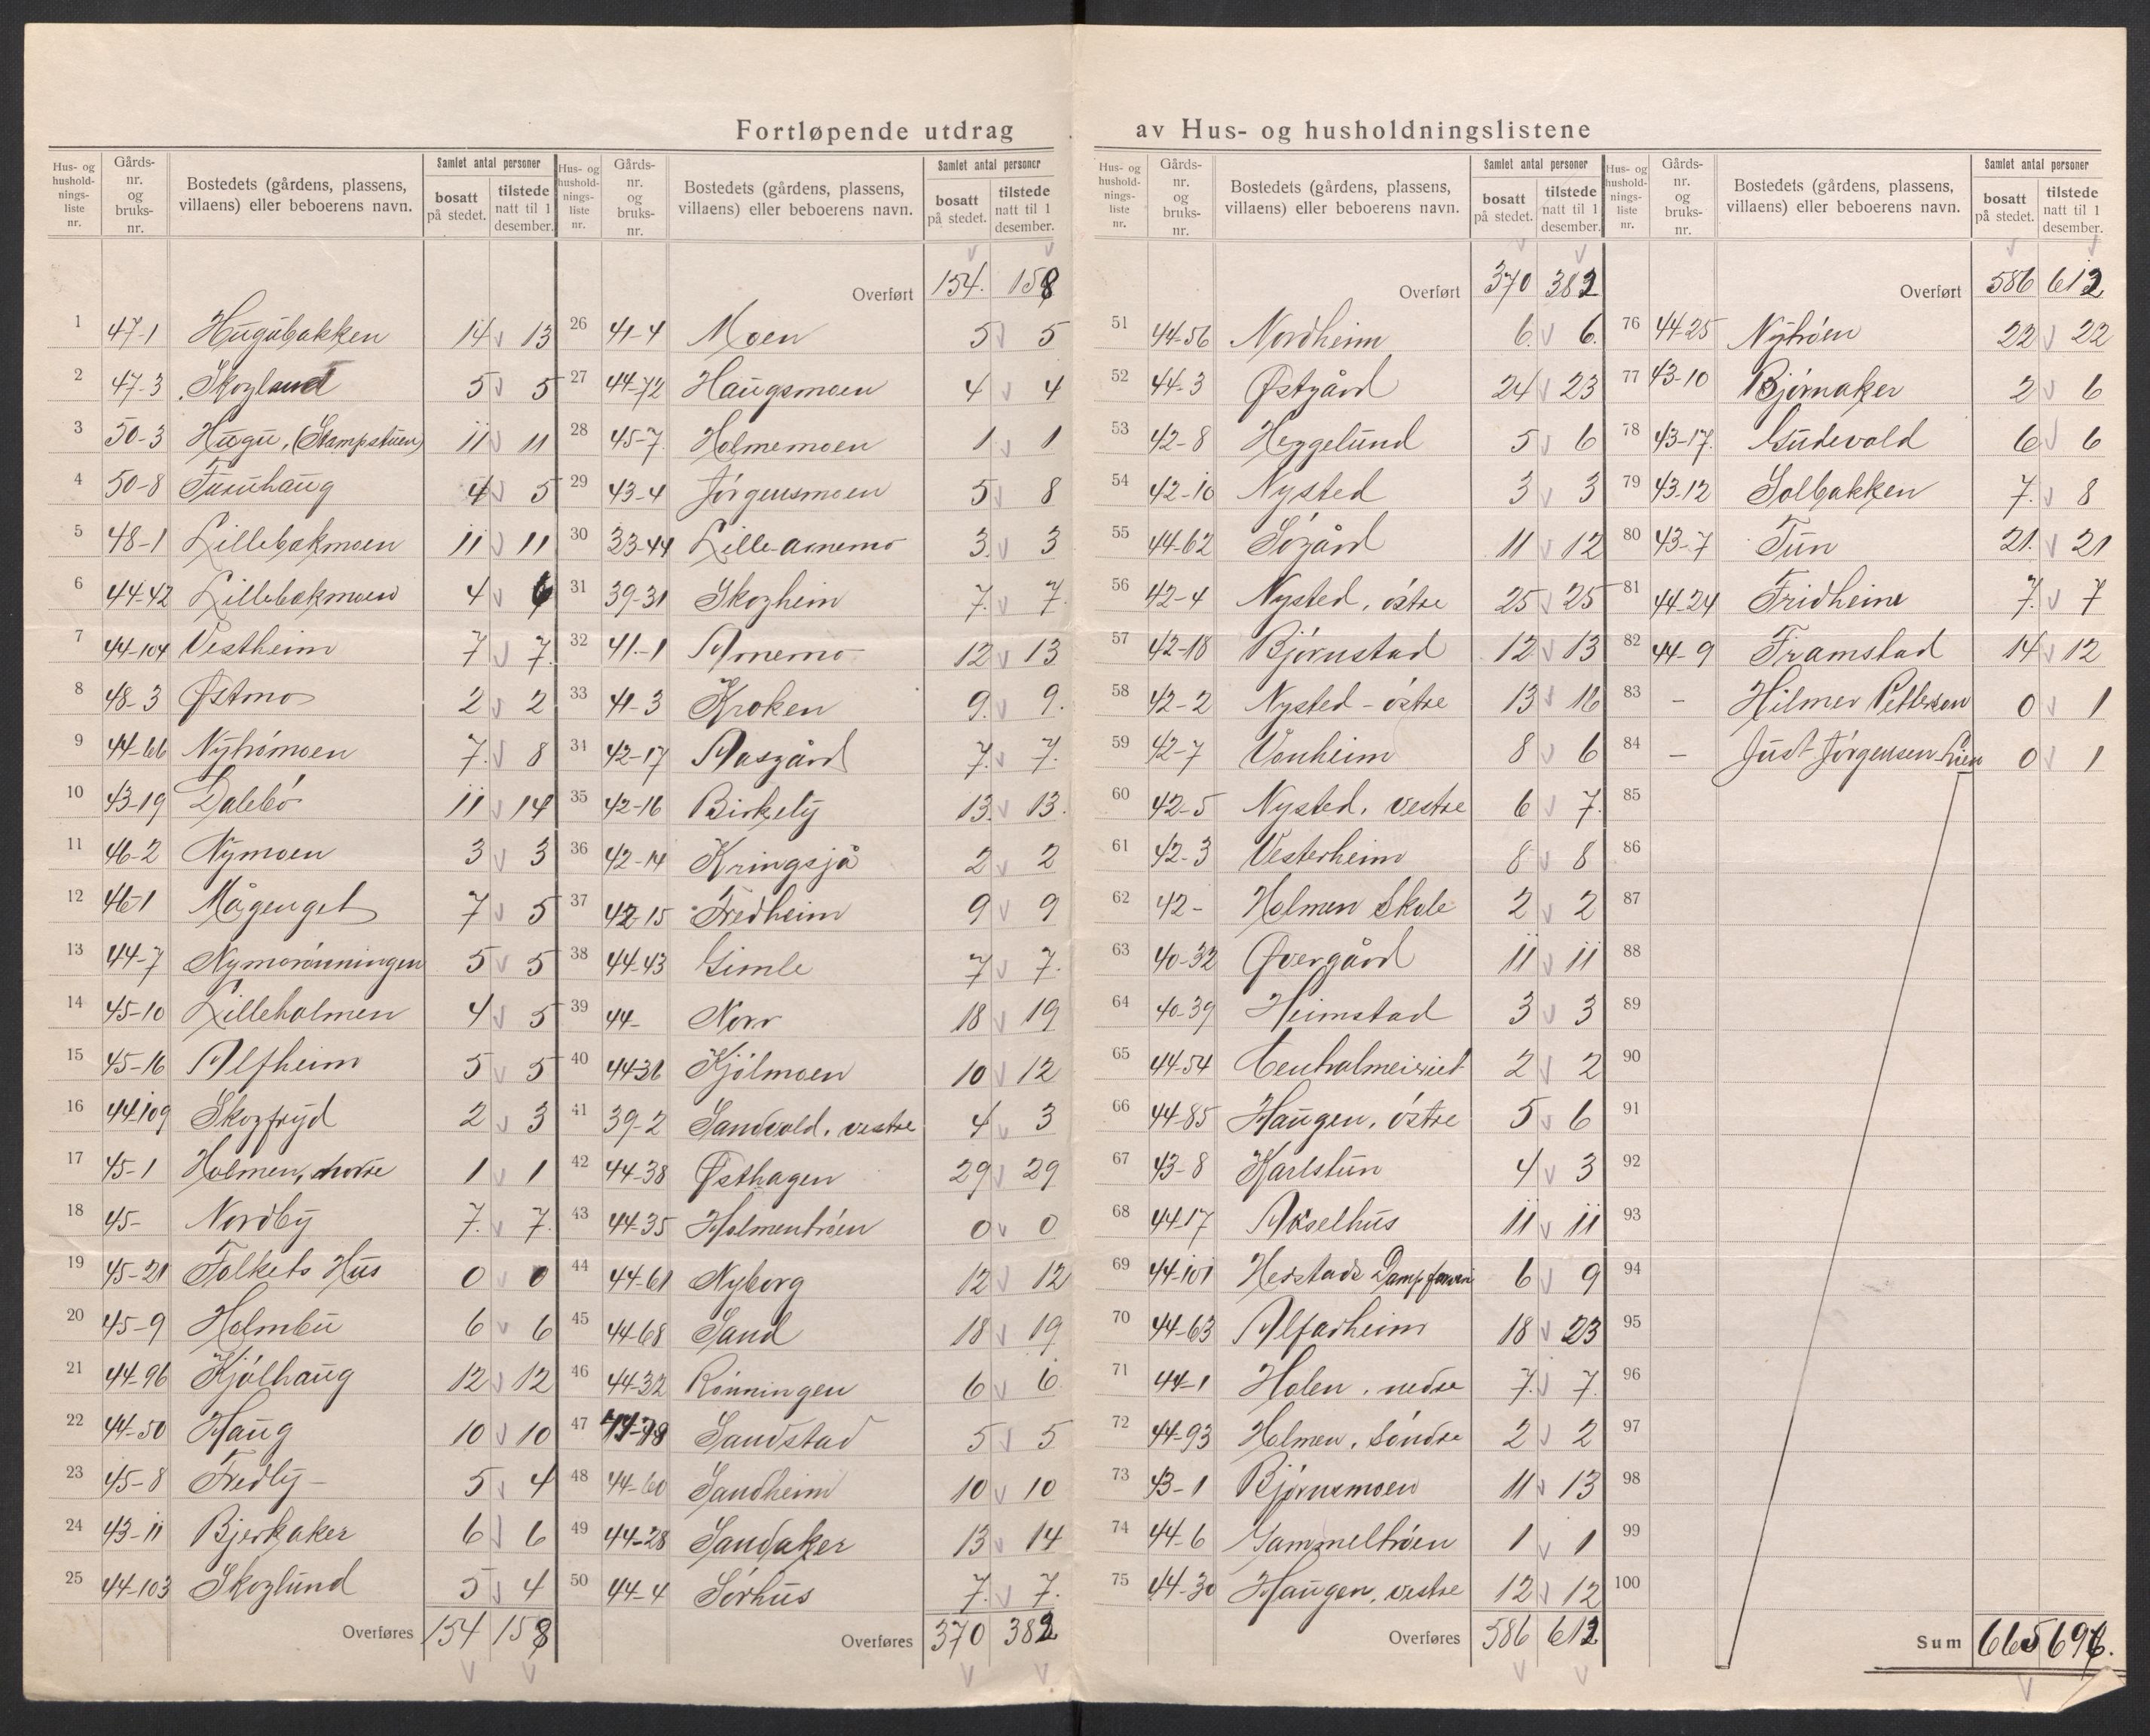 Fortløpende utdrag av Hus- og husholdningslistene
Hus- og husholdnings-liste nr. | Gårds-nr. og bruks-nr. | Bostedets (gårdens, plassens, villaens) eller beboerens navn. | Samlet antal personer | bosatt på stedet. | tilstede natt til 1 desember.
1 47-1 Hugubakken 14 13
2 47-3 Skogland 5 5
3 50-3 Hugu, (Stampstuen) 11 11
4 50-8 Furuhaug 4 5
5 48-1 Lillebakmoen 11 11
6 44-42 Lillebakmoen 4 6
7 44-104 Vestheim 7 7
8 48-3 Østmo 2 2
9 44-66 Nytrømoen 7 8
10 43-19 Dalebo 11 14
11 46-2 Nymoen 3 3
12 46-1 Mågenget 7 5
13 44-7 Nymorønningen 5 5
14 45-10 Lilleholmen 4 5
15 45-16 Alfheim 5 5
16 44-109 Skogfryd 2 3
17 45-1 Holmen, 1 1
18 45- Nordby 7 7
19 45-21 Folkets Hus 0 0
20 45-9 Holmbu 6 6
21 44-96 Kjølhaug 12 12
22 44-50 Haug 10 10
23 45-8 Fredly 5 4
24 43-11 Bjerkaker 6 6
25 44-103 Skoglund 5 4
Overføres 154 158
Hus- og husholdnings-liste nr. | Gårds-nr. og bruks-nr. | Bostedets (gårdens, plassens, villaens) eller beboerens navn. | Samlet antal personer | bosatt på stedet. | tilstede natt til 1 desember.
Overført 154. 158
26 41-4 Moen 5 5
27 44-72 Haugsmoen 4 4
28 45-7 Holmemoen 1 1
29 43-4 Jørgensmoen 5 8
30 33-44 Lille-Arnemo 3 3
31 39-31 Skogheim 7 7
32 41-1 Arnemo 12 13
33 41-3 Kroken 9 9
34 42-17 Aasgård 7 7
35 42-16 Birkely 13 13
36 42-14 Kringsjå 2 2
37 42-15 Fredheim 9 9
38 44-43 Gimle 7 7
39 44- Nor 18 19
40 44-36 Kjølmoen 10 12
41 39-2 Sandvold, vestre 4 3
42 44-38 Østhagen 29 29
43 44-35 Holmentrøen 0 0
44 44-61 Nyborg 12 12
45 44-68 Sand 18 19
46 44-32 Rønningen 6 6
47 Sandstad 5 5
48 44-60 Sandheim 10 10
49 44-28 Sandaker 13 14
50 44-4 Sørhus 7 7
Overføres 370 382
Hus- og husholdnings-liste nr. | Gårds-nr. og bruks-nr. | Bostedets (gårdens, plassens, villaens) eller beboerens navn. | Samlet antal personer | bosatt på stedet. | tilstede natt til 1 desember.
Overført 370 382
51 44-56 Nordheim 6 6
52 44-3 Østgård 24 23
53 42-8 Heggelund 5 6
54 42-10 Nysted 3 3
55 44-62 Søgård 11 12
56 42-4 Nysted, østre 25 25
57 42-18 Bjørnstad 12 13
58 42-2 Nysted - østre 13 16
59 42-7 Vonheim 8 6
60 42-5 Nysted, vestre 6 7
61 42-3 Vesterheim 8 8
62 42- Holmen Skole 2 2
63 40-32 Øvergård 11 11
64 40-39 Heimstad 3 3
65 44-54 Centralmeieriet 2 2
66 44-85 Haugen, østre 5 6
67 43-8 Karlstun 4 3
68 44-17 Akselhus 11 11
69 44-101 6 9
70 44-63 Alfarheim 18 23
71 44-1 Holen, nedre 7 7
72 44-93 Holmen, søndre 2 2
73 43-1 Bjørnsmoen 11 13
74 44-6 Gammeltrøen 1 1
75 44-30 Haugen, vestre 12 12
Overføres 586 612
Hus- og husholdnings-liste nr. | Gårds-nr. og bruks-nr. | Bostedets (gårdens, plassens, villaens) eller beboerens navn. | Samlet antal personer | bosatt på stedet. | tilstede natt til 1 desember.
Overført 586 612
76 44-25 Nytrøen 22 22
77 43-10 Bjørnaker 2 6
78 43-17 Gudevold 6 6
79 43-12 Solbakken 7 8
80 43-7 Tun 21 21
81 44-24 Fridheim 7 7
82 44-9 Framstad 14 12
83 - Hilmer Pettersen 0 1
84 - Just Jørgensen Lien 0 1
85
86
87
88
89
90
91
92
93
94
95
96
97
98
99
100
Sum 665 696.